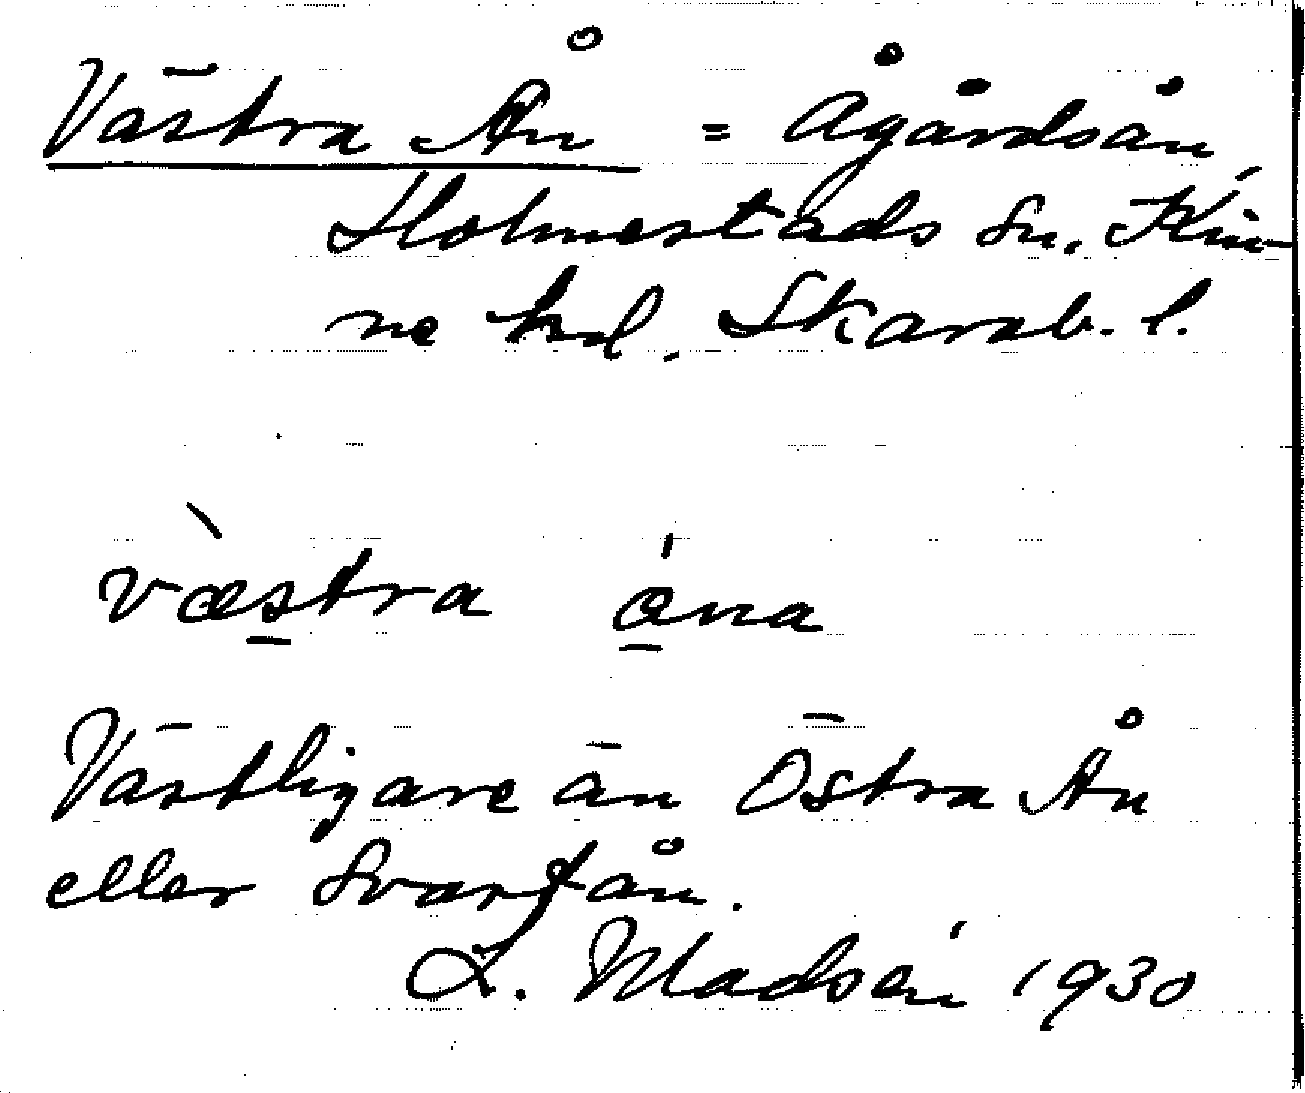 Västra Ån = Ågårdsån,
Holmestads sn. Kin-
ne hd. Skarab. l.
væ̀stra ána
Västligare än Östra Ån
eller Svartån.
L. Madsén 1930